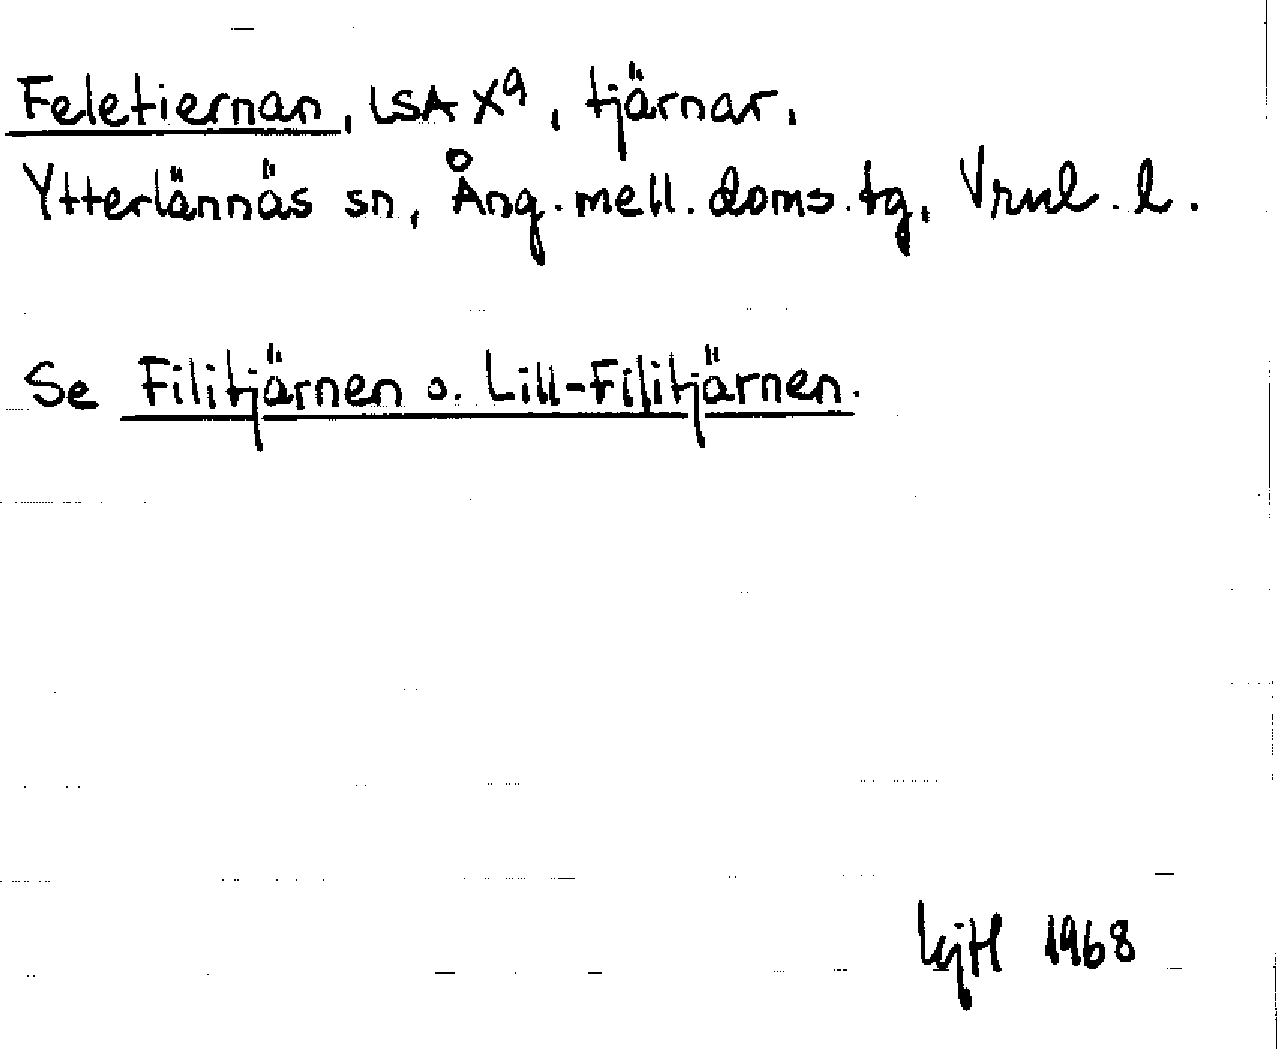 Feletiernan, LSA X9, tjärnar,
Ytterlännäs sn, Ång. mell. doms. tg, Vrnl. l.
Se Filitjärnen o. Lill-Filitjärnen.
1968